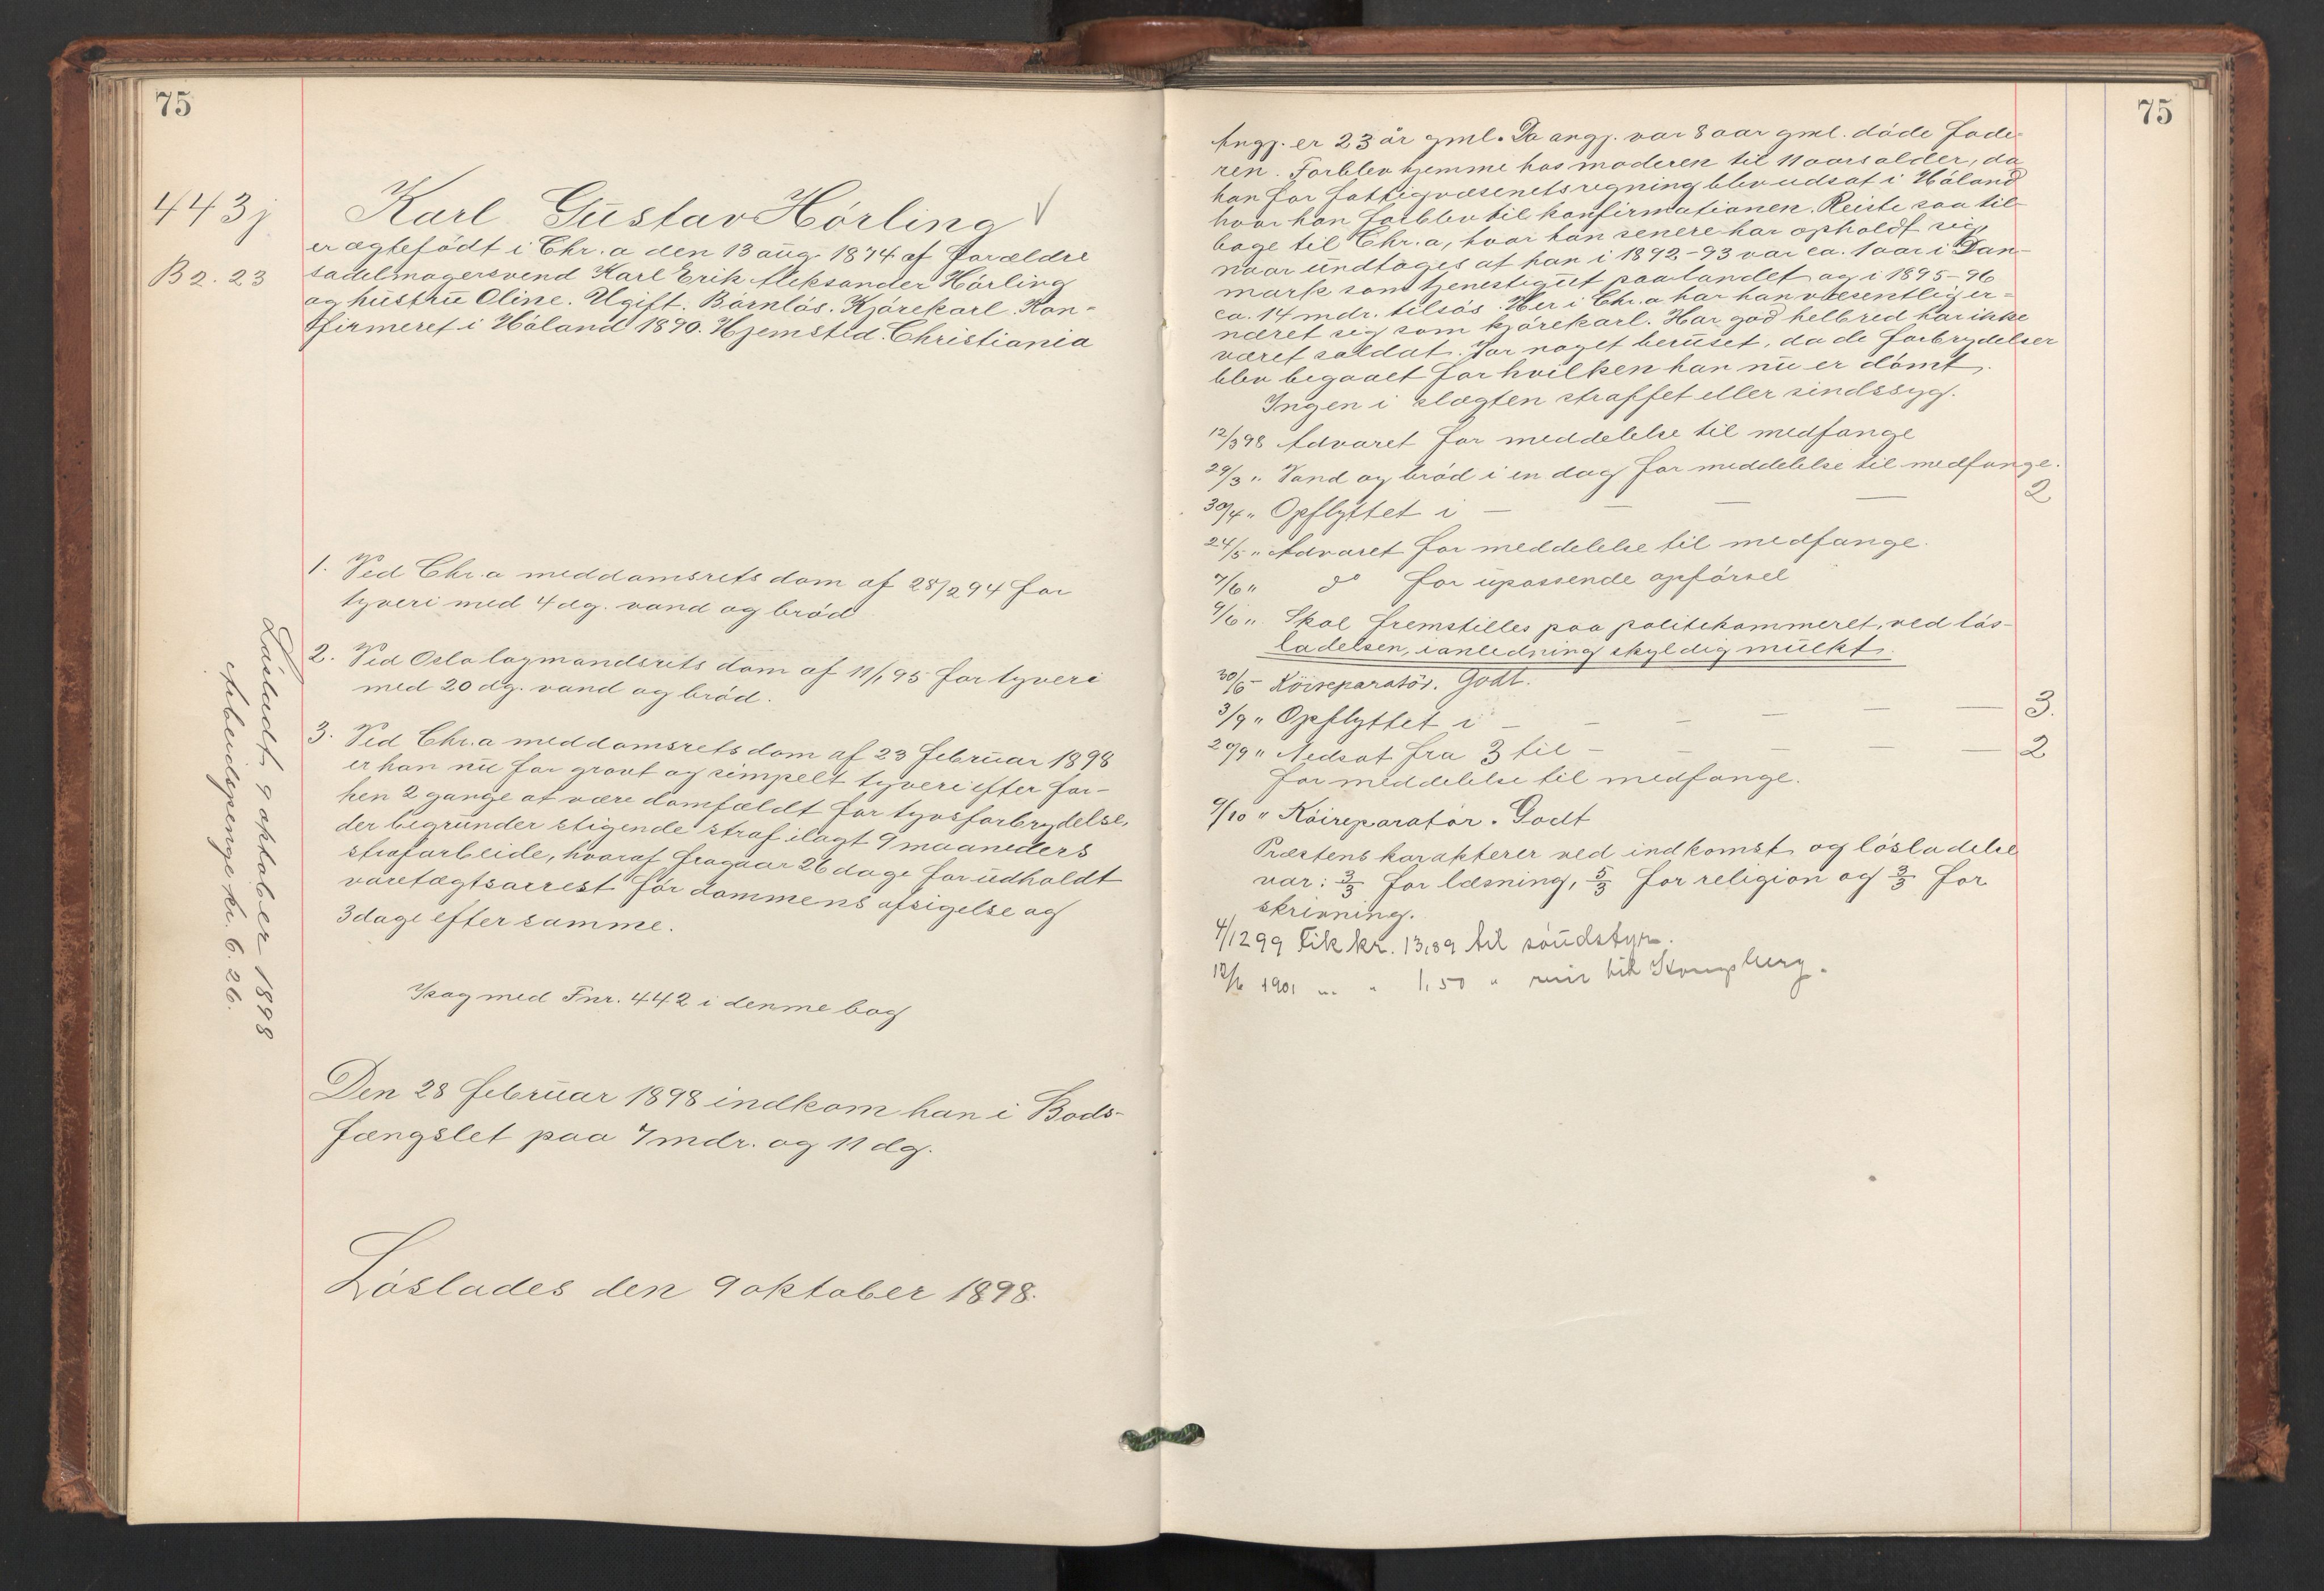 75
443 j
B 2. 23
Karl Gustav Hörling
er ægtefödt i Chr.a den 13 aug. 1874 af forældre
sadelmagersvend Karl Erik Aleksander Hörling
og hustru Oline. Ugift. Barnlös. Kjörekarl. Kon-
firmeret i Höland 1890. Hjemsted. Christiania
1. Ved Chr.a meddomsrets dom af 28/2 94 for
tyveri med 4 dg. vand og bröd
2. Ved Oslo lagmandsrets dom af 11/1 95 for tyveri
med 20 dg. vand og bröd.
3. Ved Chr.a meddomsrets dom af 23 februar 1898
er han nu for grovt og simpelt tyveri efter for-
hen 2 gange at være domfældt for tyvsforbrydelse,
der begrunder stigende straf ilagt 9 maaneders
strafarbeide, hvoraf fragaar 26 dage for udholdt
varetægtsarrest för dommens afsigelse og
3 dage efter samme.
I sag med Fnr. 442 i denne bog
Den 28 februar 1898 indkom han i Bods-
fængslet paa 7 mdr. og 11 dg.
Löslades den 9 oktober 1898.
Lösladt 9 oktober 1898
Arbeidspenge kr. 6.26.
75
Angj. er 23 år gml. Da angj. var 8 aar gml. döde fade-
ren. Forblev hjemme hos moderen til 11 aars alder, da
han for fattigvæsenets regning blev udsat i Höland
hvor han forblev til konfirmationen. Reiste saa til-
bage til Chr.a, hvor han senere har opholdt sig,
naar undtages at han i 1892-93 var ca. 1 aar i Dan-
mark som tjenestegut paa landet og i 1895-96
ca. 14 mdr. tilsös. Her i Chr.a har han væsentlig er-
næret sig som kjörekarl. Har god helbred har ikke
været soldat. Var noget beruset, da de forbrydelser
blev begaaet for hvilken han nu er dömt.
Ingen i slægten straffet eller sindssyg.
12/3 98 Advaret for meddelelse til medfange
29/3 " Vand og bröd i en dag for meddelelse til medfange.
30/4 " Opflyttet i — — — — 2
24/5 " Advaret for meddelelse til medfange.
7/6 " do for upassende opförsel
9/6 " Skal fremstilles paa politikammeret, ved lös-
ladelsen, i anledning skyldig mulkt.
30/6 - Köireparatör. Godt.
3/9 " Opflyttet i — — — — — — 3.
20/9 " Nedsat fra 3 til — — — — — 2
for meddelelse til medfange.
9/10 " Köireparatör. Godt
Præstens karakterer ved indkomst og lösladelse
var: 3/3 for læsning, 5/3 for religion og 3/3 for
skrivning.
4/12 99 Fik kr. 13,89 til
12/6 1901 " " 1,50 " til Kongsberg.